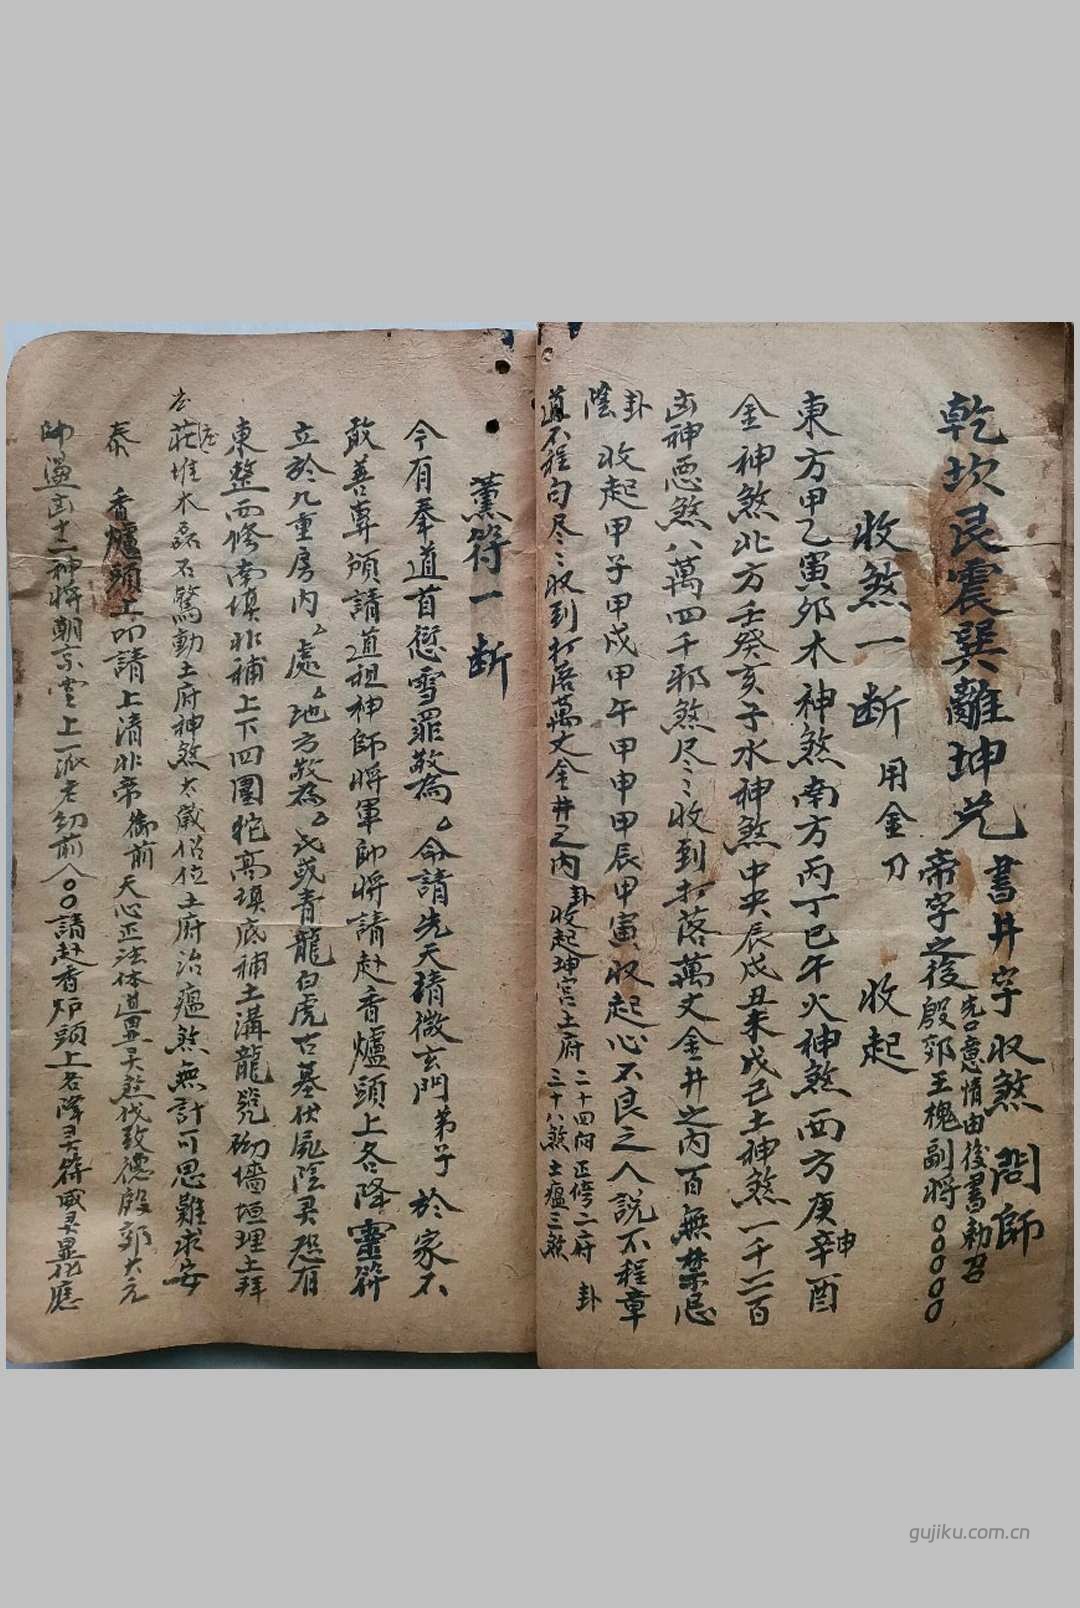 乾坎艮震巽離坤兑書井字收煞 問師
帝字之後
先口意情由後書勅召
殷郊王槐副将〇〇〇〇
收煞一断 用金刀 收起
東方甲乙寅卯木神煞南方丙丁巳午火神煞西方庚辛申酉
金神煞北方壬癸亥子水神煞中央辰戌丑未戊己土神煞一千二百
凶神恶煞八萬四千邪煞尽々收到打落萬丈金井之内百無禁忌
陰卦 收起甲子甲戍甲午甲申甲辰甲寅收起心不良之人說不程章
道不程句尽々收到打落萬丈金井之内 卦 收起坤宫土府 二十四向正傍二府
三十八煞土瘟三煞 卦
薰符一断
今有奉道首愆雪罪敬為。命請先天清微玄門弟子 於家不
敢善專 領請道祖神師將軍帥將請赴香爐頭上各降靈符
立於九重房内。處。地方敬為。氏或青龍白虎古墓伏屍陰灵恐有
東整西修南填北補上下四圍挖高填底補土溝龍貌砌墻垣理土拜
庄
莊堆木磊石驚動土府神煞太歲侣位土府治瘟煞無計可思難求安
泰 香爐頭上叩請上清北帝御前天心正法体道異灵煞伐致德殷郊大元
帥 十二神将朝京雲上一派老幼前八〇〇請赴香炉頭上各降灵符威灵显化應
gujiku.com.cn